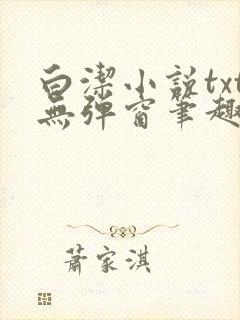 白潔小説txt
無彈窗筆趣
蕭家淇